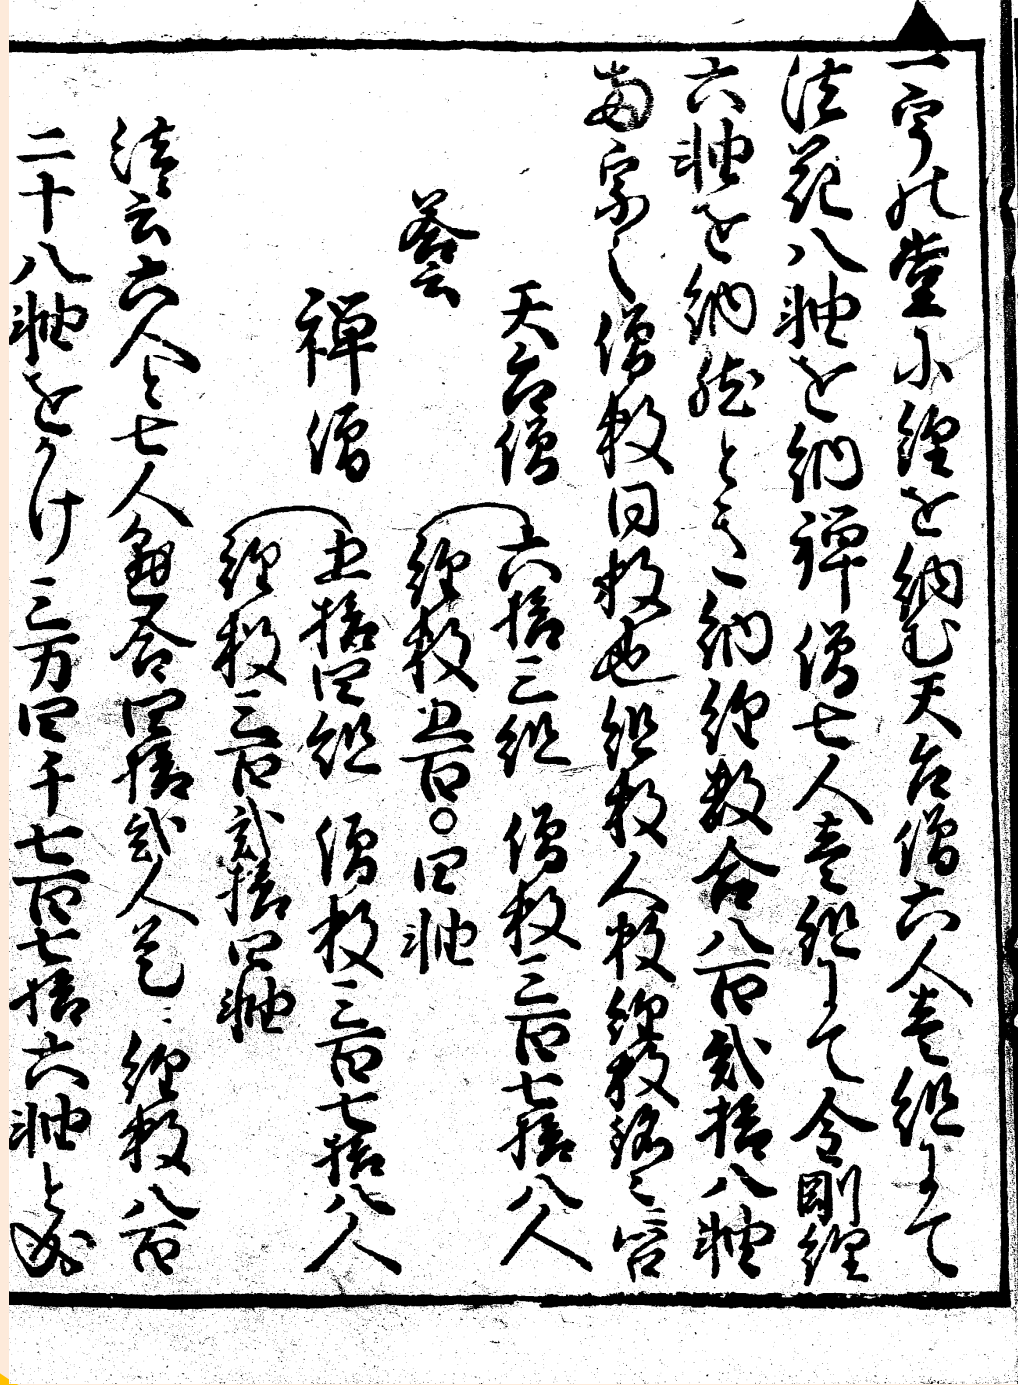 一字の堂に経を納む天台僧六人壱組にて
法花八軸を納禅僧七人壱組にて金剛経
六軸を納然ときニ納経数合八百弐拾八軸
両宗之僧数同数也組数人数経数銘々ニ答
天台僧 六拾三組 僧数三百七拾八人
経数五百〇四軸
答云
禅僧 五拾四組 僧数三百七拾八人
経数三百弐拾四軸
法云六人と七人
合四拾弐人 経数八百
二十八軸をかけ三万四千七百七拾六軸と成